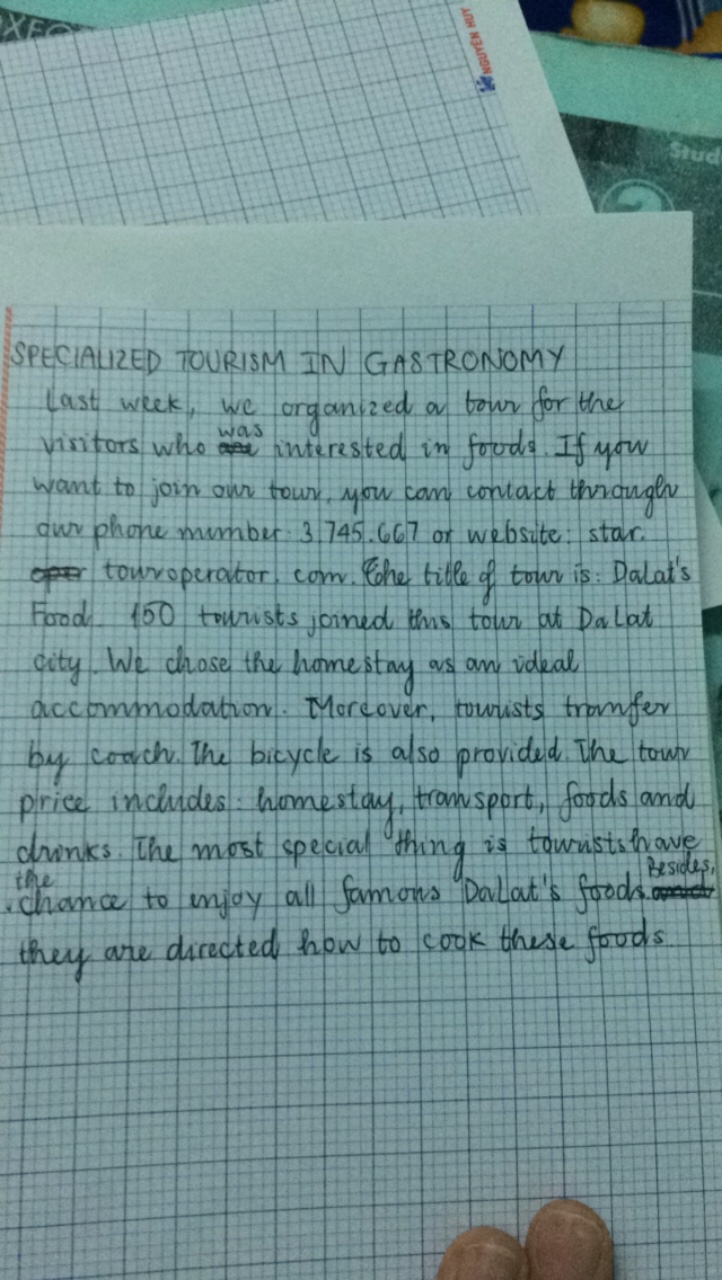 NGUYEN HUY
Stud
2
SPECIALIZED TOURISM IN GASTRONOMY
Last week, we organized a tour for the
was
visitors who are interested in foods. If you
want to join our tour, you can contact through
our phone number: 3.745.667 or website: star.
oper touroperator.com. The title of tour is: DaLat's
Food. 150 tourists joined this tour at DaLat
city. We chose the homestay as an ideal
accommodation. Moreover, tourists tranfer
by coach. The bicycle is also provided. The tour
price includes: homestay, transport, foods and
drinks. The most special thing is tourists have
the Besides,
chance to enjoy all famous DaLat's foods. and
they are directed how to cook these foods.